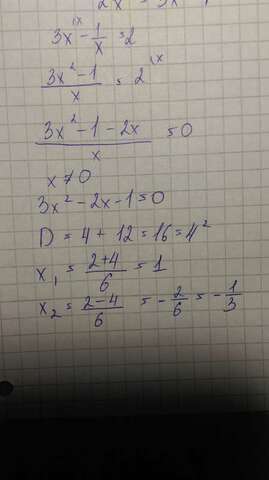 3x - 1/x = 2
(3x² - 1)/x = 2
(3x² - 1 - 2x)/x = 0
x ≠ 0
3x² - 2x - 1 = 0
D = 4 + 12 = 16 = 4²
x₁ = (2+4)/6 = 1
x₂ = (2-4)/6 = -2/6 = -1/3